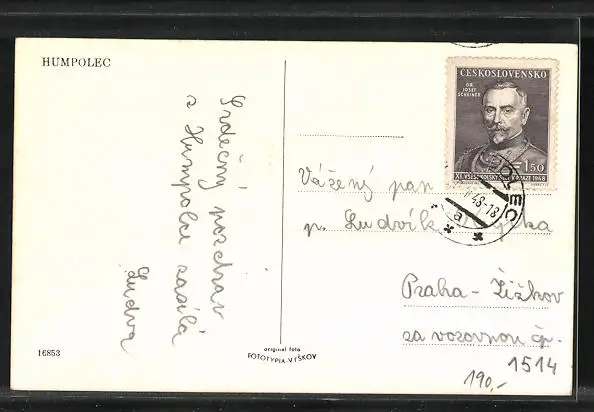 HUMPOLEC
Srdečný pozdrav
z Humpolce zasílá
Ludva
16853
original foto
FOTOTYPIA-VYŠKOV
ČESKOSLOVENSKO
DR. JOSEF
SCHEINER
1.50
XI. VŠESOKOLSKÝ SLET V PRAZE 1948
48-18
a
Vážený pan
p. Ludvík
Praha - Žižkov
za vozovnou čp.
1514
190,-